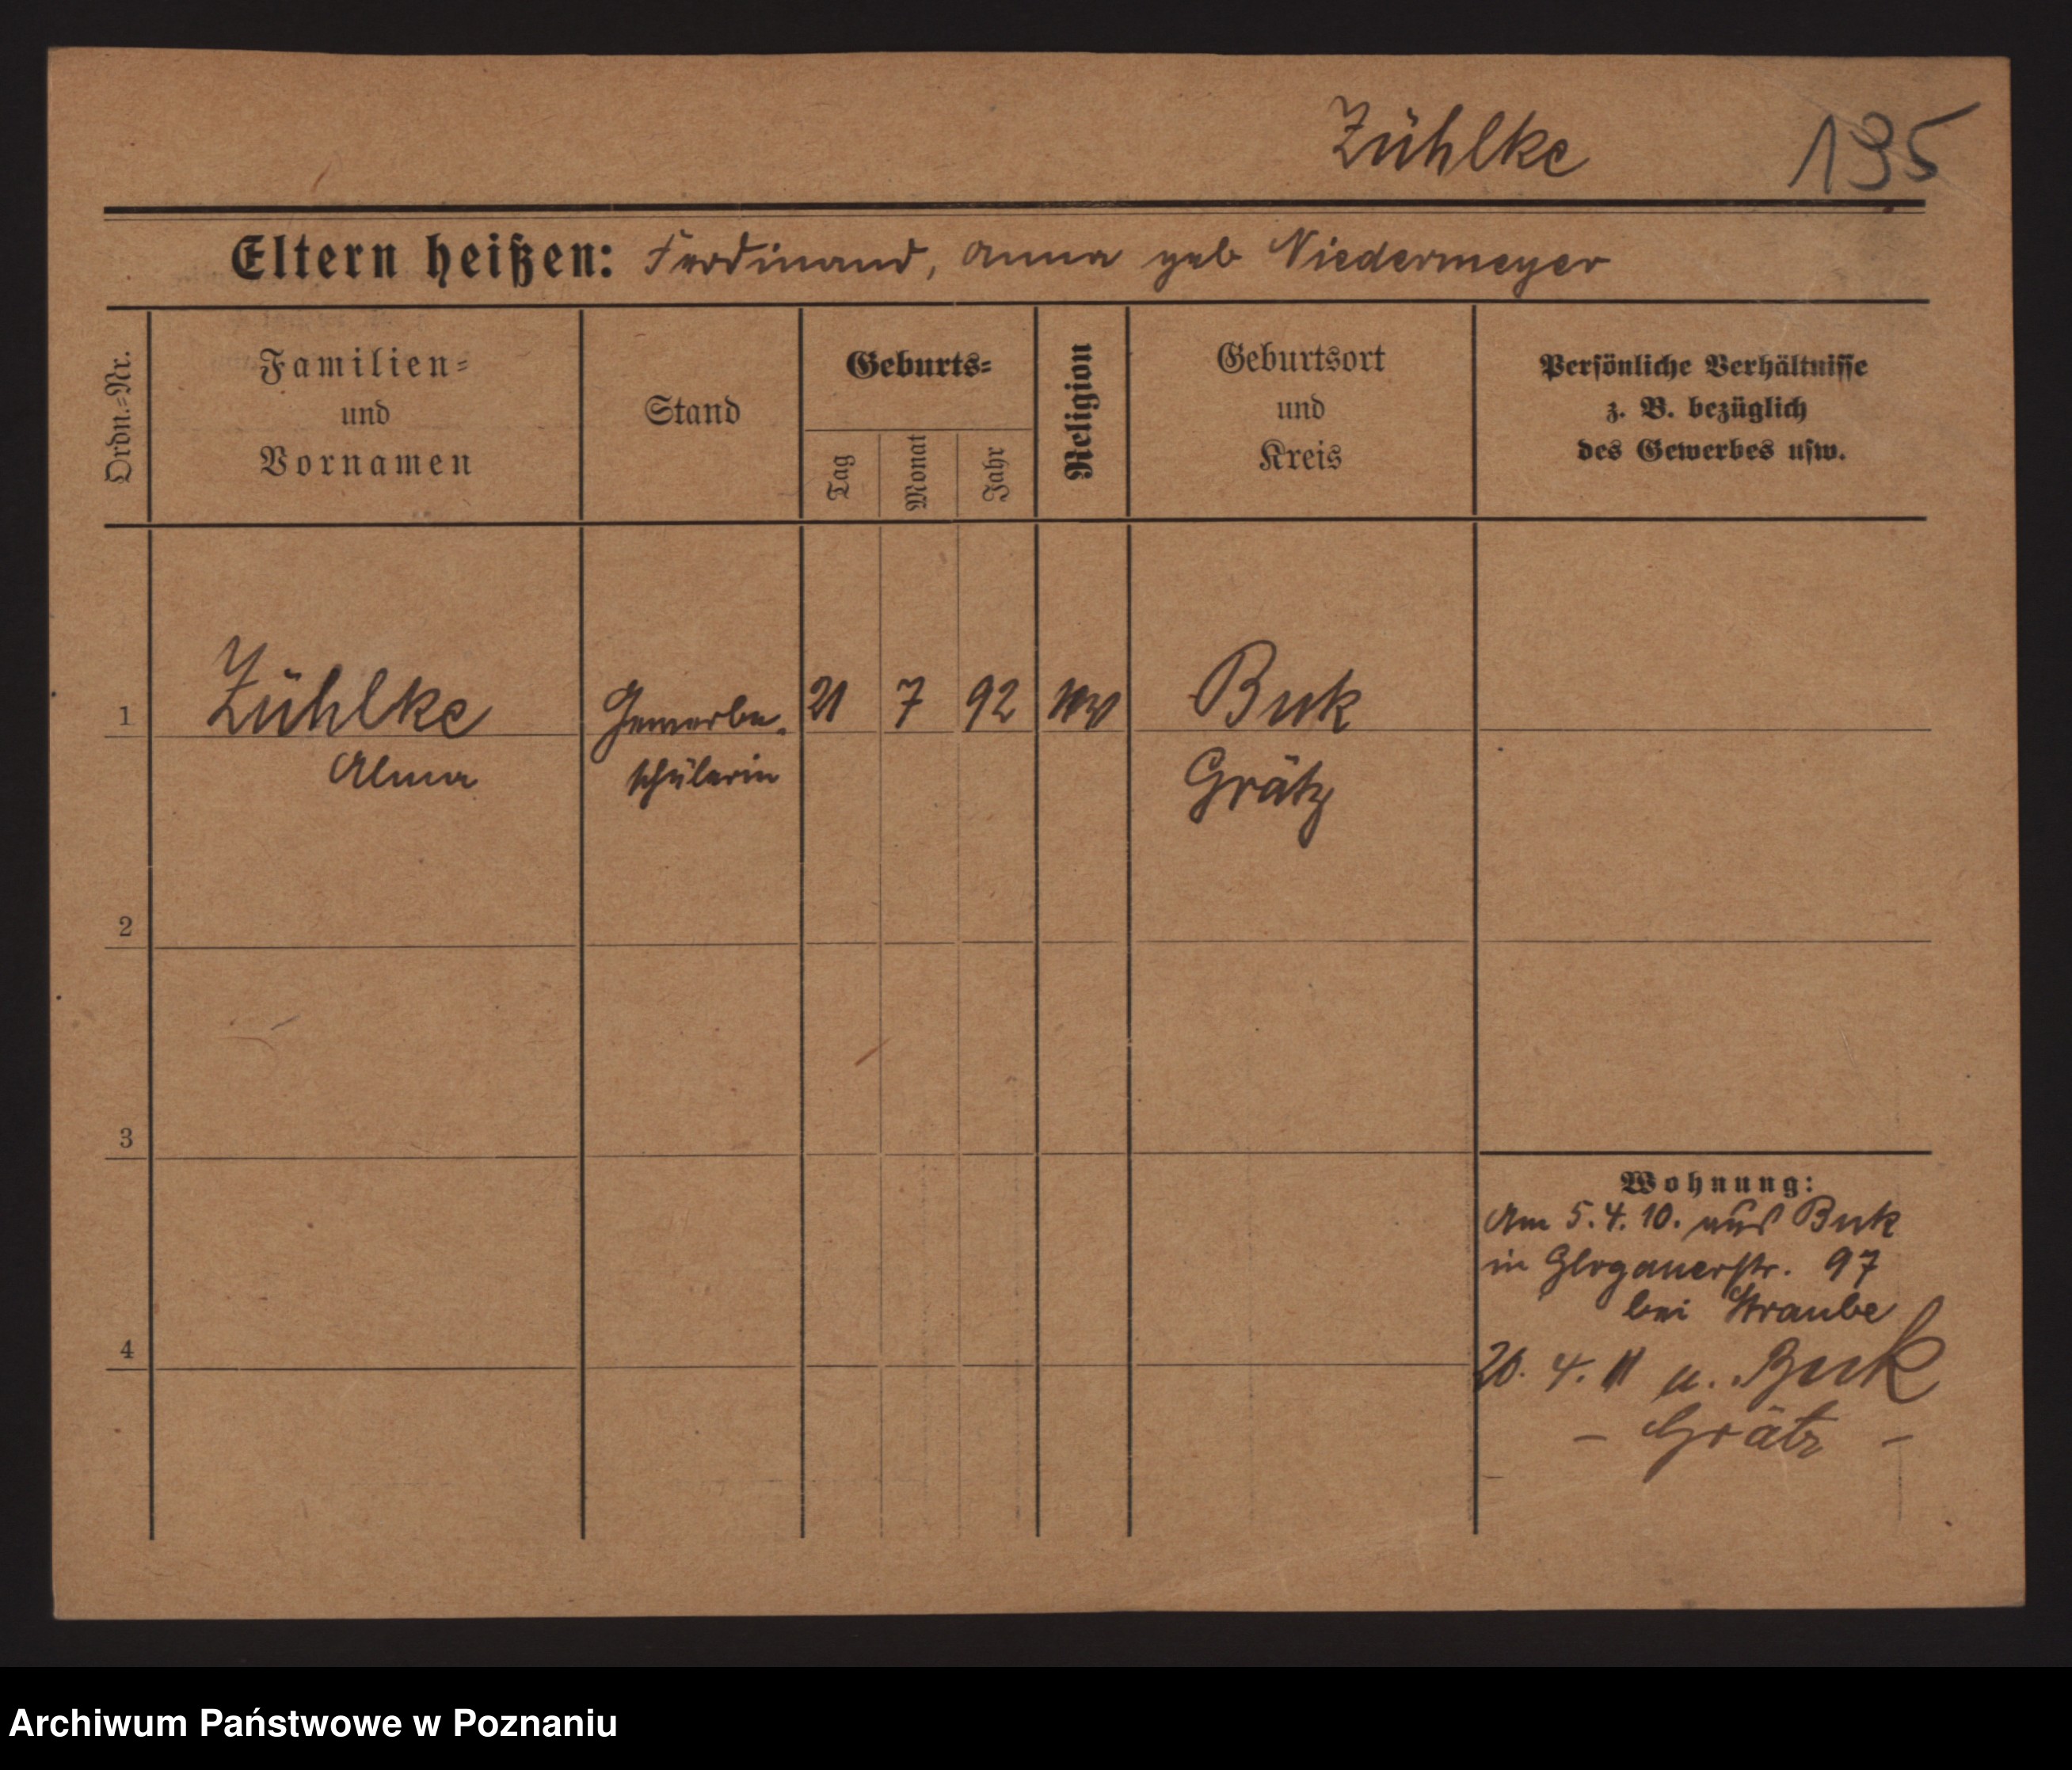 Zühlke 195
Eltern heißen: Ferdinand, Anna geb Niedermeyer
Ordn.=Nr.
Familien=
und
Vornamen
Stand
Geburts=
Tag
Monat
Jahr
Religion
Geburtsort
und
Kreis
Persönliche Verhältnisse
z. B. bezüglich
des Gewerbes usw.
1 Zühlke Gewerbe- 21 7 92 ev Buk
Alma schülerin Grätz
2
3
4
Wohnung:
Am 5.4.10. aus Buk
in Glogauerstr. 97
bei Straube
20. 4. 11 n. Buk
- Grätz -
Archiwum Państwowe w Poznaniu